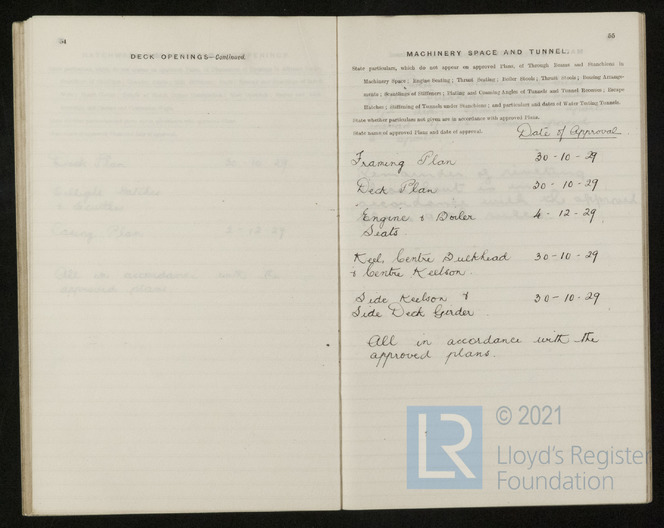 54
DECK OPENINGS—Continued.
55
MACHINERY SPACE AND TUNNEL.
State particulars, which do not appear on approved Plans, of Through Beams and Stanchions in
Machinery Space; Engine Seating; Thrust Seating; Boiler Stools; Thrust Stools; Bossing Arrange-
ments; Scantlings of Stiffeners; Plating and Coaming Angles of Tunnels and Tunnel Recesses; Escape
Hatches; Stiffening of Tunnels under Stanchions; and particulars and dates of Water Testing Tunnels.
State whether particulars not given are in accordance with approved Plans.
State names of approved Plans and date of approval.
Date of Approval.
Framing Plan 30-10-29
Deck Plan 30-10-29
Engine & Boiler 4-12-29
Seats.
Keel, Centre Bulkhead 30-10-29
& Centre Keelson.
Side Keelson & 30-10-29
Side Deck Girder.
All in accordance with the
approved plans.
LR © 2021
Lloyd's Register
Foundation